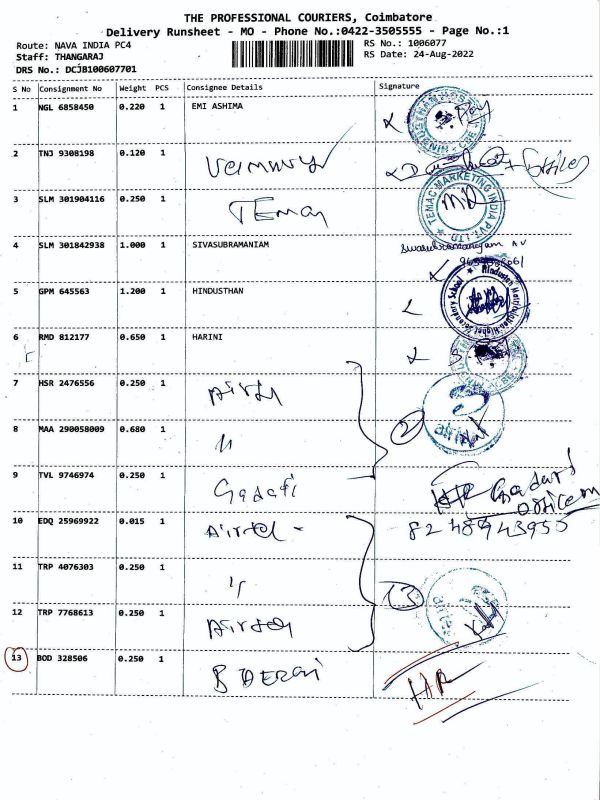 THE PROFESSIONAL COURIERS, Coimbatore
Delivery Runsheet - MO - Phone No.:0422-3505555 - Page No.:1
Route: NAVA INDIA PC4
Staff: THANGARAJ
DRS No.: DCJB100607701
RS No.: 1006077
RS Date: 24-Aug-2022
S No Consignment No Weight PCS Consignee Details Signature
1 NGL 6858450 0.220 1 EMI ASHIMA
2 TNJ 9308198 0.120 1
3 SLM 301904116 0.250 1
TEMAC MARKETING INDIA PVT. LTD
4 SLM 301842938 1.000 1 SIVASUBRAMANIAM
5 GPM 645563 1.200 1 HINDUSTHAN
6 RMD 812177 0.650 1 HARINI
7 HSR 2476556 0.250 1
8 MAA 290058009 0.680 1 "
2
airtel
9 TVL 9746974 0.250 1 Gadafi
10 EDQ 25969922 0.015 1 Airtel -
8248943955
11 TRP 4076303 0.250 1 "
13
12 TRP 7768613 0.250 1 Airtel
13 BOD 328506 0.250 1